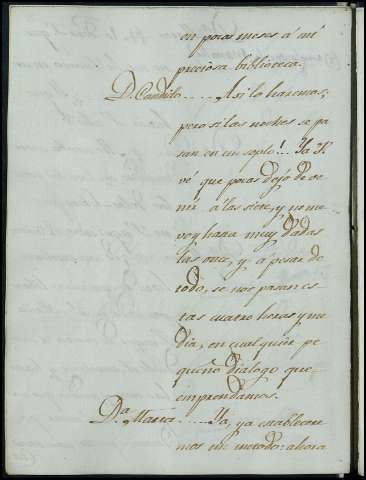 en pocas meses á mi
preciosa biblioteca.
D. Candido..... Asi lo haremos;
pero si las noches se pa
san en un soplo! Ya V.
vé que pocas dejo de ve
nir á las siete, y no me
voy hasta muy dadas
las once, y á pesar de
todo, se nos pasan es
tas cuatro horas y me
dia, en cualquier pe
queño dialogo que
emprendamos.
Da. Maria..... Ya, ya establecere
mos un metodo: ahora